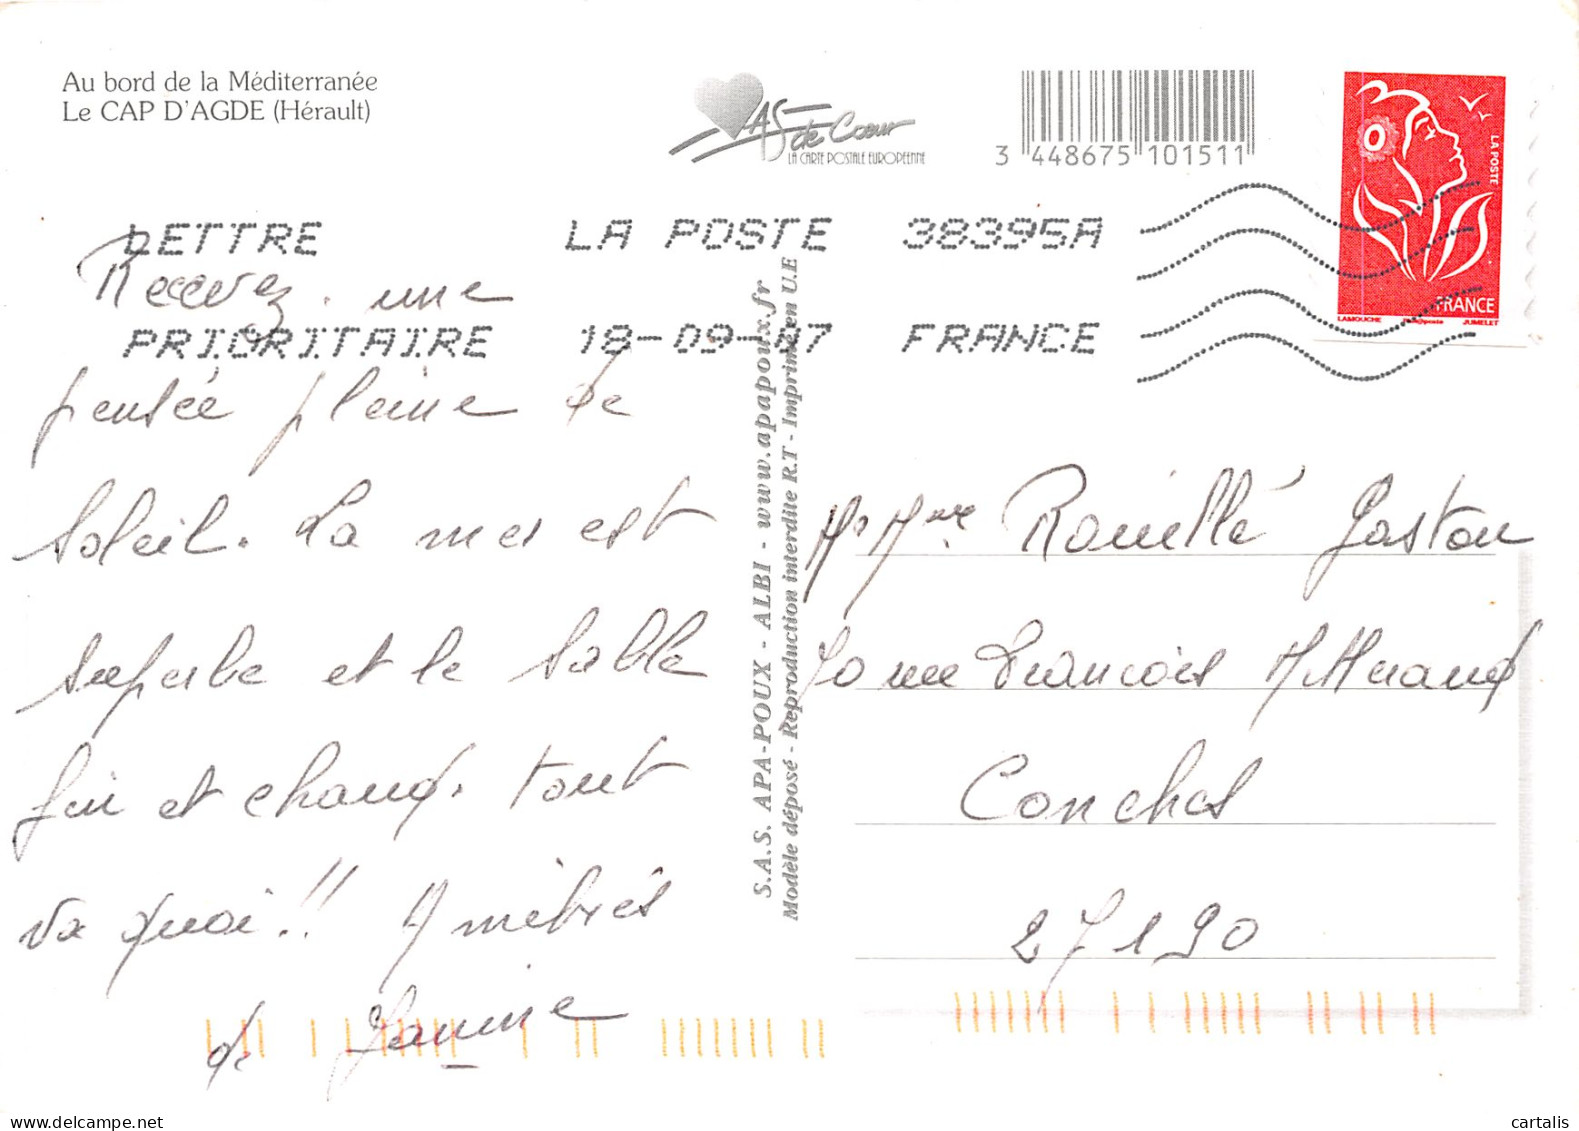 Au bord de la Méditerranée
Le CAP D'AGDE (Hérault)
AS de Cœur
LA CARTE POSTALE EUROPÉENNE
3 448675 101511
LA POSTE
FRANCE
LAMOUCHE
JUMELET
LETTRE LA POSTE 38395A
PRIORITAIRE 18-09-07 FRANCE
Recevez une
pensée pleine de
Soleil. La mer est
superbe et le sable
fin et chaud. tout
va quoi!! Amitiés
de Janine
S.A.S. APA-POUX - ALBI - www.apapoux.fr
Modèle déposé - Reproduction interdite R.T - Imprimé en U.E
Mr Mme Rouillé Gaston
rue Francois Mitterand
Conches
27190
cartalis